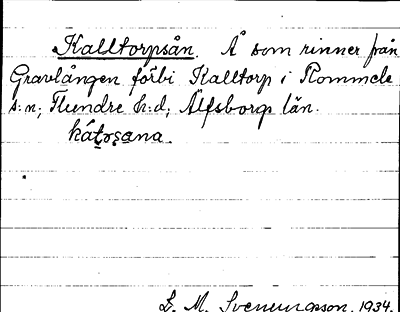 Kalltorpsån. Å som rinner från
Gravlången förbi Kalltorp i Rommele
s:n; Flundre h:d; Älfsborgs län.
kátǫșana.
L. M. Svenungsson. 1934.